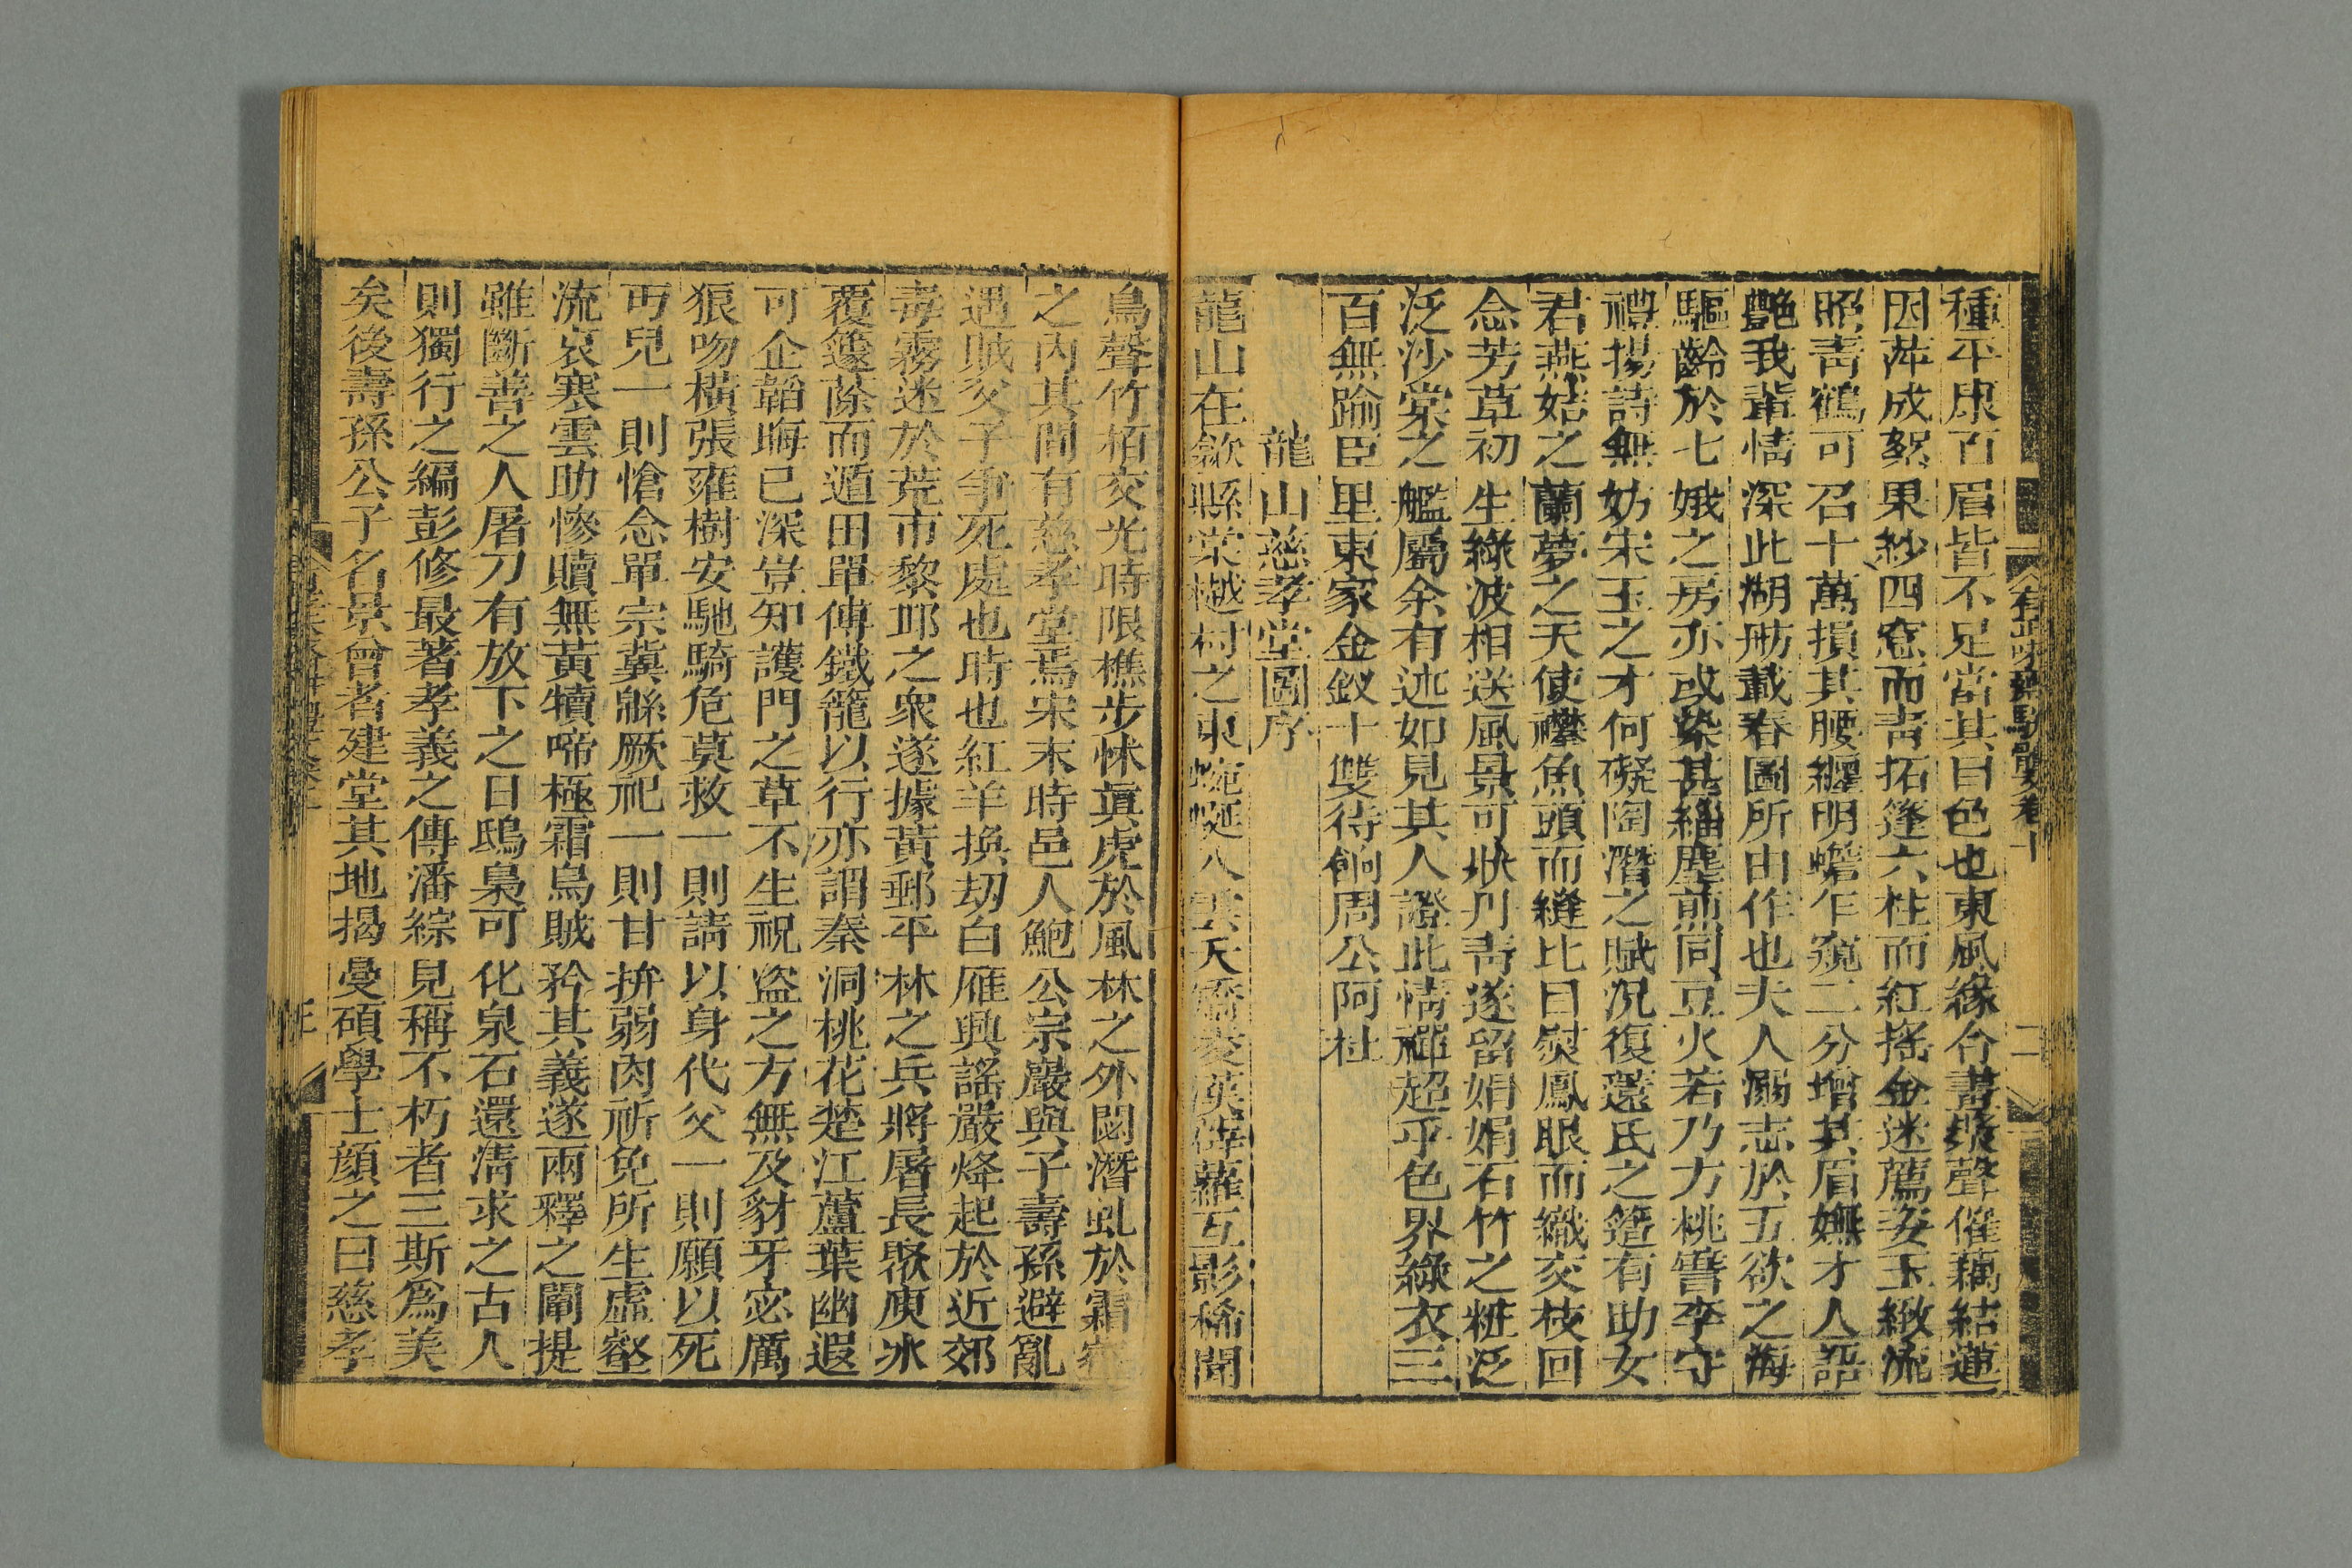 有正味齋駢體文卷十
二
種平康百眉皆不足當其目色也東風緣合畫槳聲催藕結蓮
因萍成絮果紗四窓而靑拓篷六柱而紅搖金迷薦姿玉緻流
照靑鶴可召十萬損其腰纏明蟾乍窺二分增其眉嫵才人語
艷我輩情深此湖舫載春圖所由作也夫人溺志於五欲之海
驅齡於七娥之房亦或染甚緇塵煎同豆火若乃方桃譬李守
禮揚詩無妨宋玉之才何礙陶潛之賦況復還氏之簉有助女
君燕姞之蘭夢之天使襻魚頭而縫比目熨鳳眼而織交枝回
念芳草初生綠波相送風景可狀丹靑遂留娟娟石竹之粧泛
泛沙棠之艦屬余有述如見其人證此情禪超乎色界綠衣三
百無踰臣里東家金釵十雙待餉周公阿杜
龍山慈孝堂圖序
龍山在歙縣棠樾村之東蜿蜒入雲夭矯交漢薜蘿互影稀聞
鳥聲竹栢交光時限樵步怵眞虎於風林之外閟潛虬於霜
之內其間有慈孝堂焉宋末時邑人鮑公宗巖與子壽孫避亂
遇賊父子爭死處也時也紅羊換刧白雁興謠嚴烽起於近郊
毒霧迷於荒市黎邱之衆遂據黃郵平林之兵將屠長聚庾冰
覆籧蒢而遁田單傅鐵籠以行亦謂秦洞桃花楚江蘆葉幽遐
可企韜晦已深豈知護門之草不生祝盜之方無及豺牙宓厲
狼吻橫張雍樹安馳騎危莫救一則請以身代父一則願以死
丐兒一則愴念單宗冀緜厥祀一則甘拚弱肉祈免所生虛壑
流哀寒雲助慘贖無黃犢啼極霜烏賊矜其義遂兩釋之闡提
雖斷善之人屠刀有放下之日鴟梟可化泉石還淸求之古人
則獨行之編彭修最著孝義之傳潘綜見稱不朽者三斯爲美
矣後壽孫公子名景曾者建堂其地揭曼碩學士顏之曰慈孝